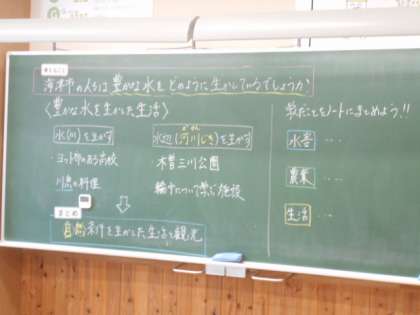 海津市の人々は豊かな水をどのように生かしているでしょうか
〈豊かな水を生かした生活〉
水(川)を生かす
・ヨット部のある高校
・川魚の料理
水辺(河川じき)を生かす
かせん
・木曽三川公園
・輪中について学ぶ施設
まとめ
自然条件を生かした生活と観光
学んだことをノートにまとめよう!!
水害 ‥‥
農業 ‥‥
生活 ‥‥